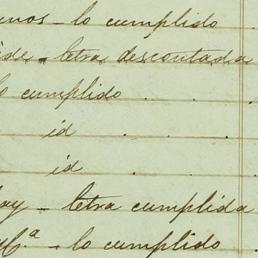 nos - lo cumplido .
ide - letra descontada
lo cumplido . . .
id . .
id . .
ay - letra cumplida
y Cª - lo cumplido .